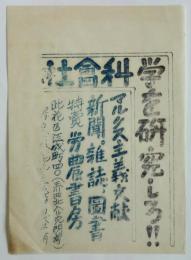 社會科
学を研究しろ!!
マルクス主義文献
新聞。雑誌。圖書
特賣 労農書房